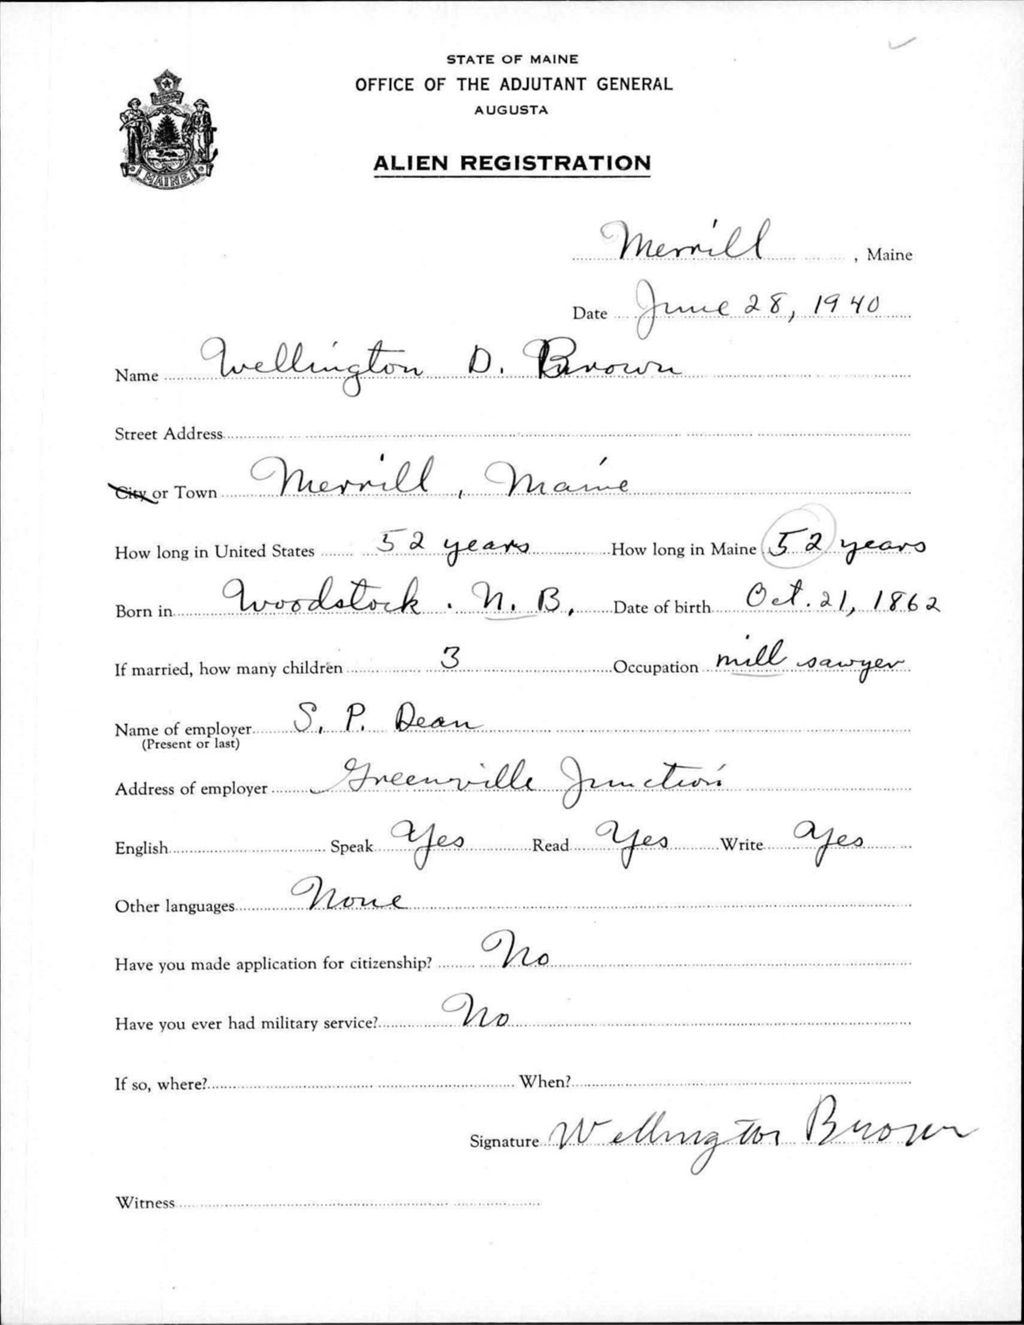 STATE OF MAINE
OFFICE OF THE ADJUTANT GENERAL
AUGUSTA
ALIEN REGISTRATION
MAINE
Merrill, Maine
Date June 28, 1940
Name Wellington D. Brown
Street Address
City or Town Merrill, Maine
How long in United States 52 years How long in Maine 52 years
Born in Woodstock. N. B. Date of birth Oct. 21, 1862
If married, how many children 3 Occupation mill sawyer
Name of employer S. P. Dean
(Present or last)
Address of employer Greenville Junction
English Speak Yes Read Yes Write Yes
Other languages None
Have you made application for citizenship? No
Have you ever had military service? No
If so, where? When?
Signature Wellington Brown
Witness